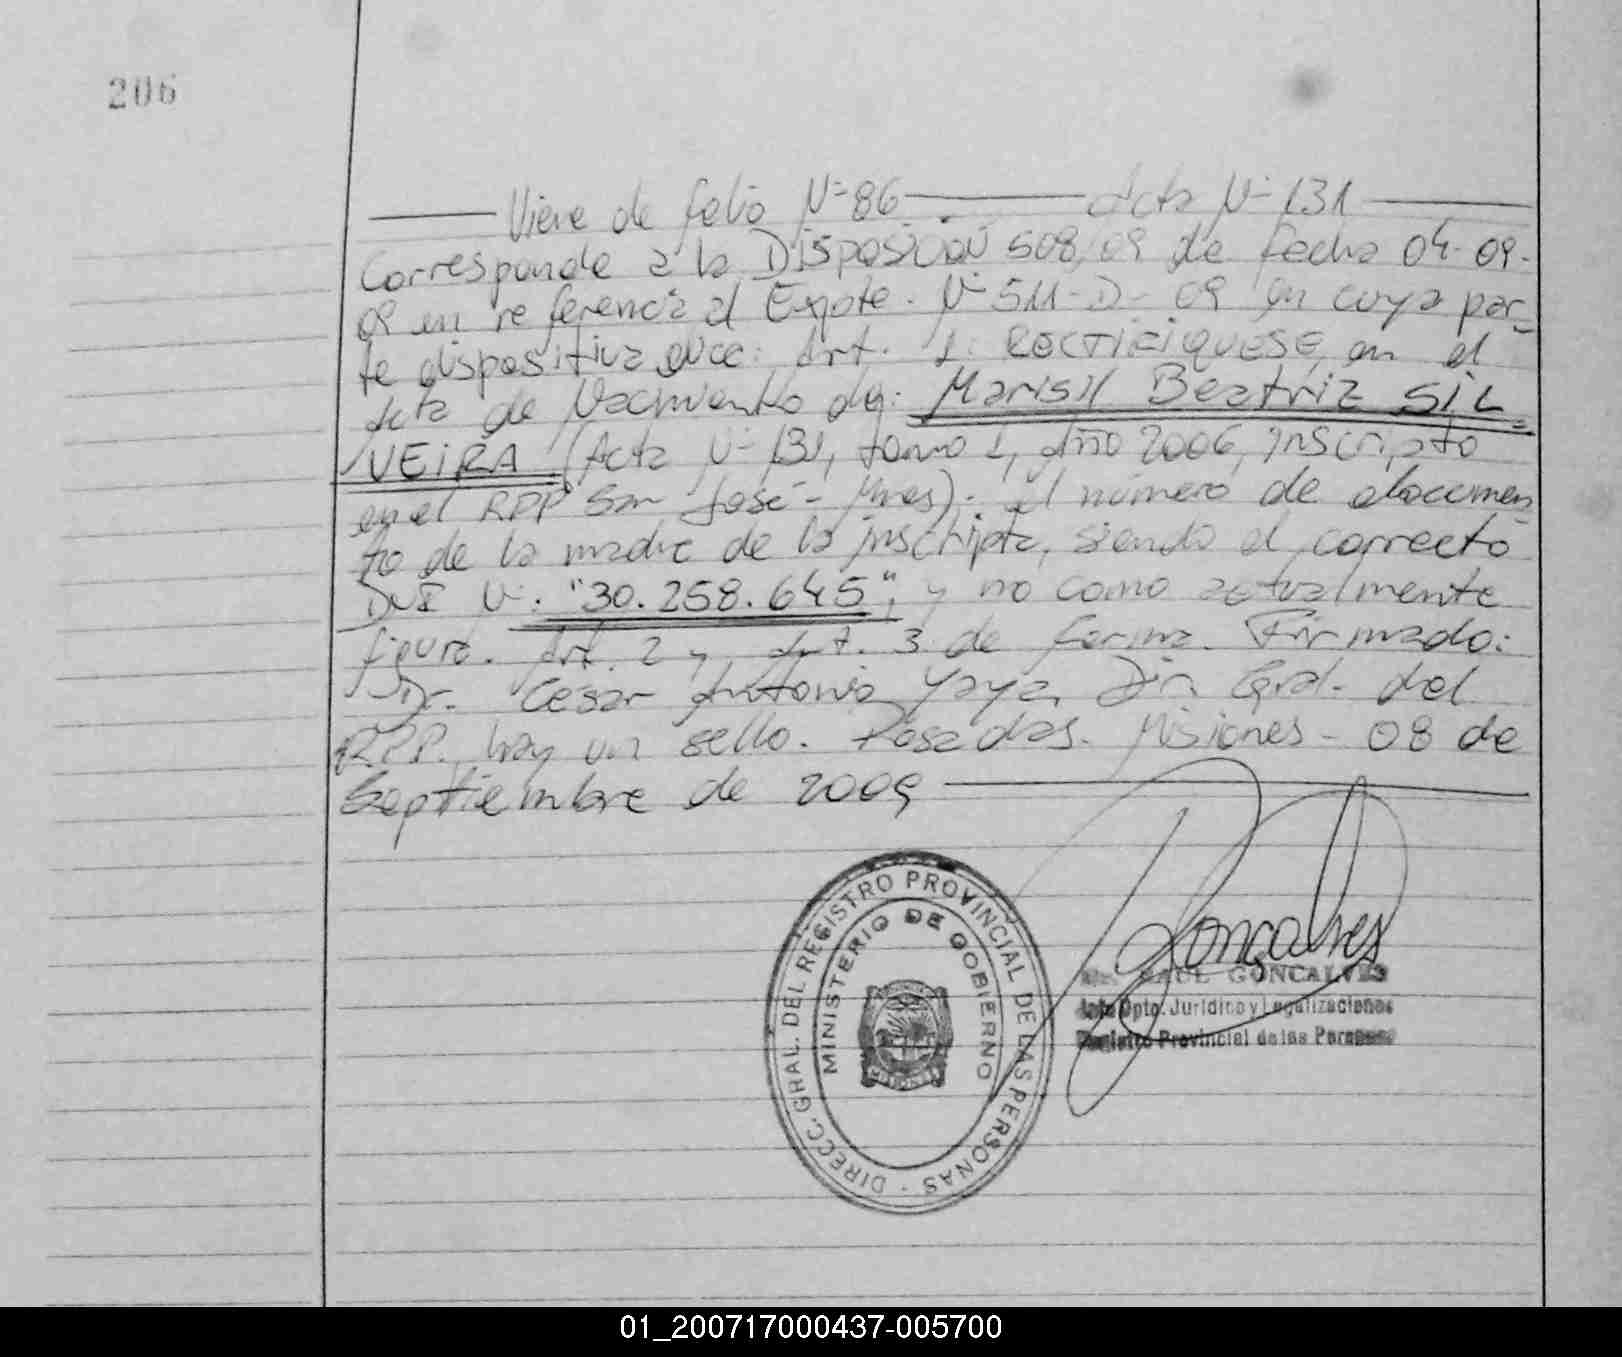 206
Viene de folio Nº 86 Acta Nº 131
Corresponde a la Disposición 508/09 de fecha 04-09-
09 en referencia al Expte. Nº 511-D-09 en cuya par-
te dispositiva dice: Art. 1: RECTIFIQUESE, en el
Acta de Nacimiento de: Marisil Beatriz SIL
VEIRA (Acta Nº 131, tomo 1, Año 2006, inscripta
en el RPP San José - Mnes). el número de documen
to de la madre de la inscripta, siendo el correcto
DNI Nº: "30.258.645"; y no como actualmente
figura. Art. 2 y Art. 3 de forma. Firmado:
Dr. Cesar Antonio Yaya, Dir. Gral. del
RPP. hay un sello. Posadas. Misiones - 08 de
Septiembre de 2009
DIRECC. GRAL. DEL REGISTRO PROVINCIAL DE LAS PERSONAS
MINISTERIO DE GOBIERNO
MISIONES
Goncalves
RAUL GONCALVES
Jefe Dpto. Jurídico y Legalizaciones
Registro Provincial de las Personas
01_200717000437-005700